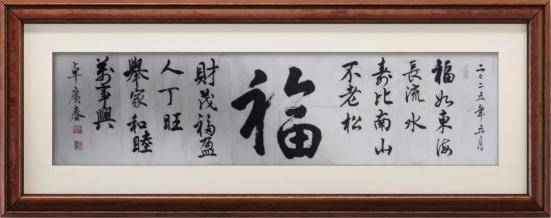 二〇二五年五月
福如東海
長流水
壽比南山
不老松
福
財茂福盈
人丁旺
舉家和睦
萬事興
卓廣春